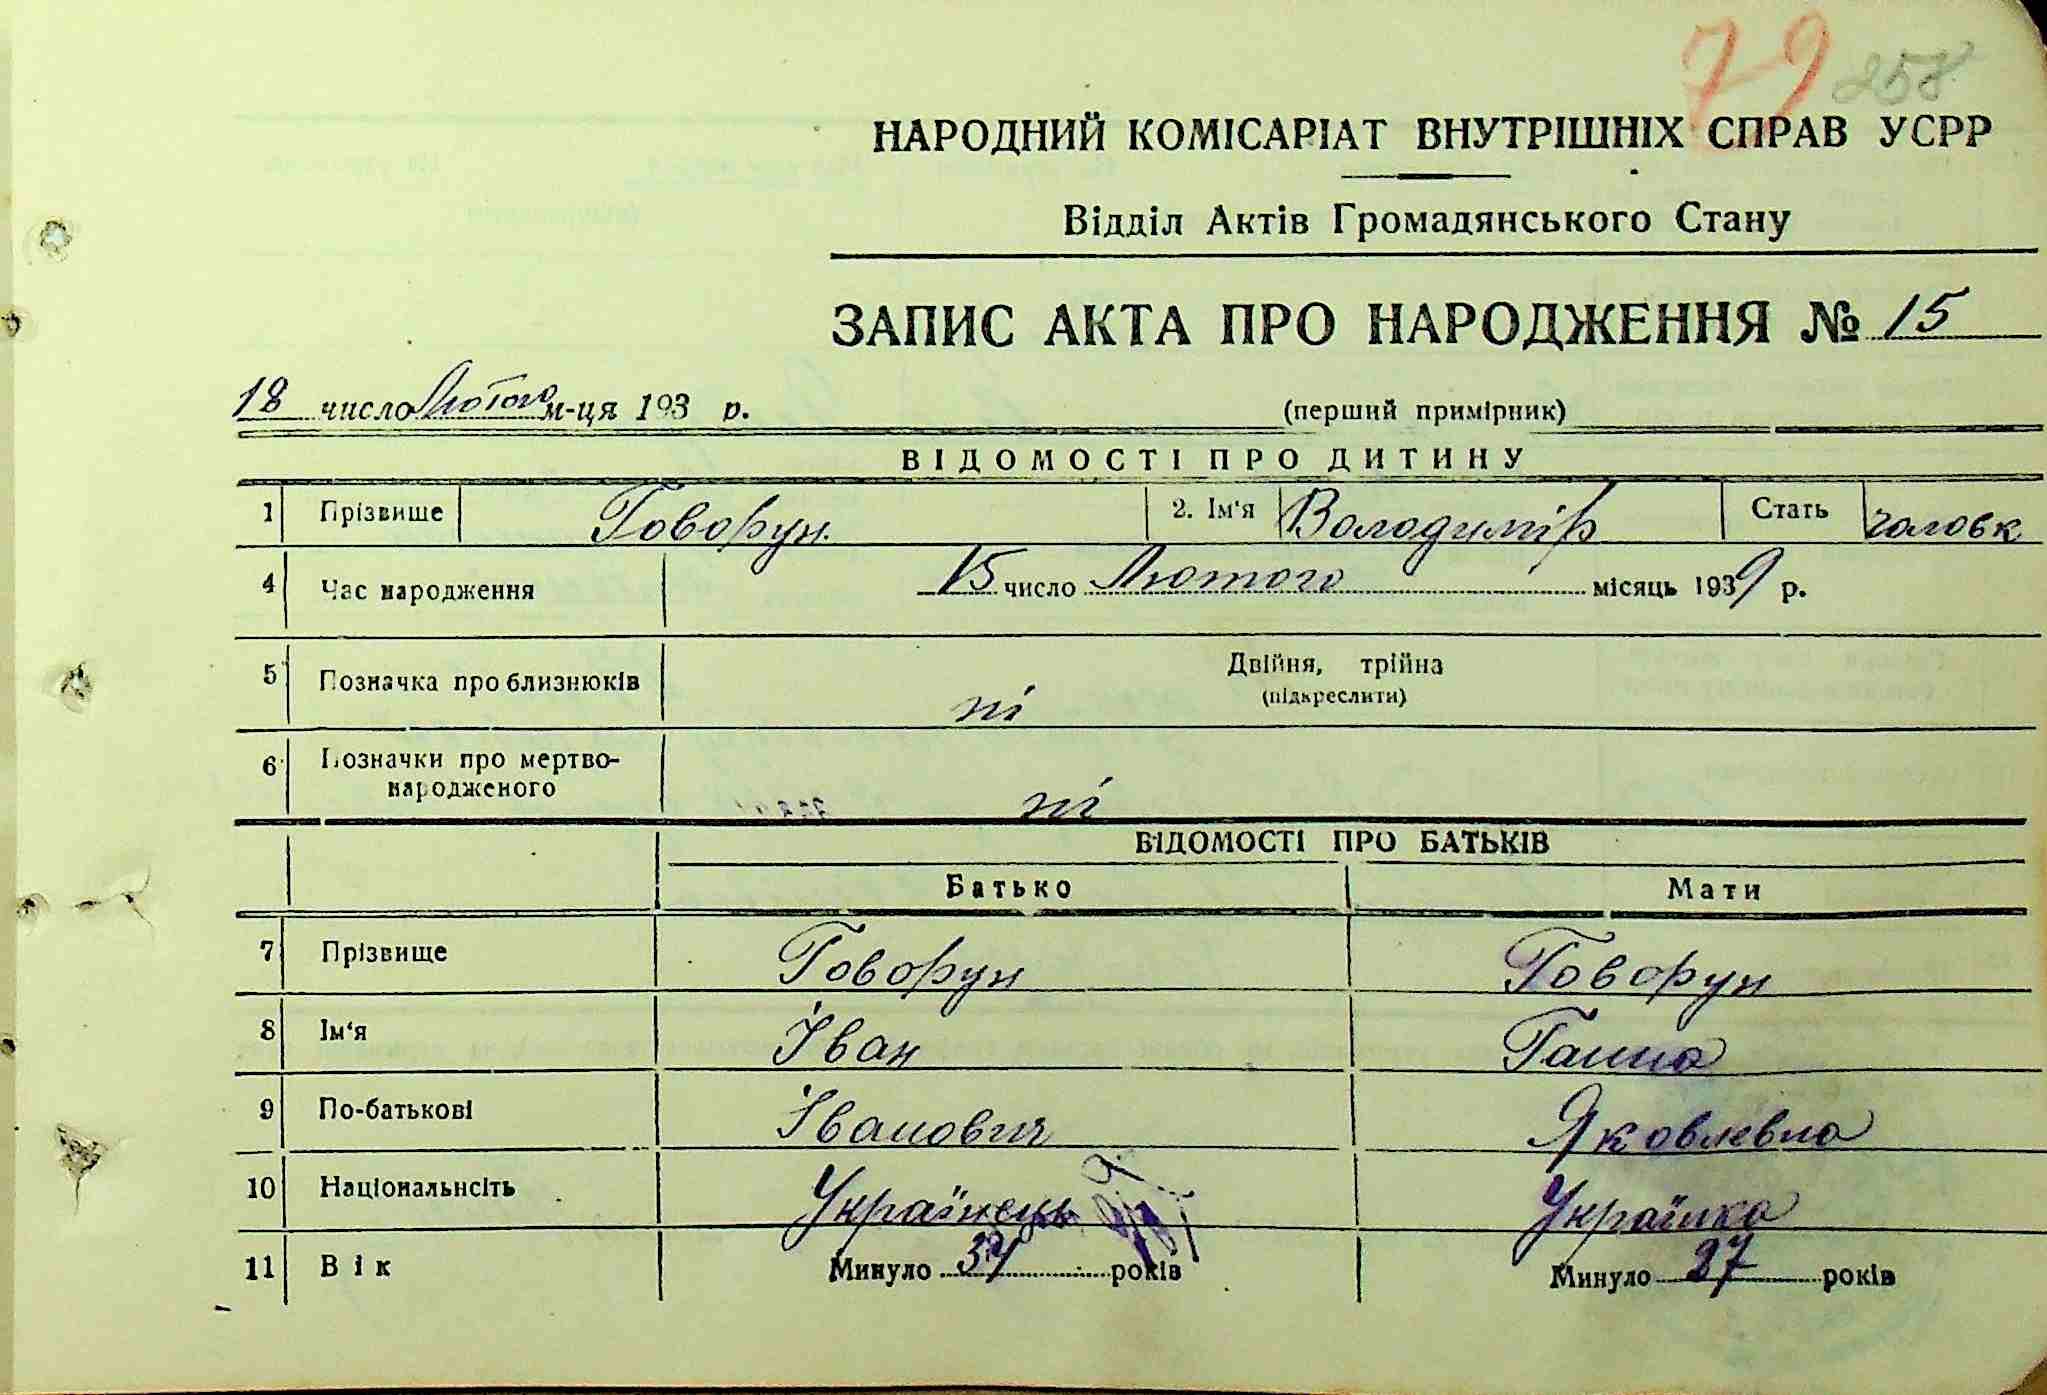 79 258
НАРОДНИЙ КОМІСАРІАТ ВНУТРІШНІХ СПРАВ УСРР
Відділ Актів Громадянського Стану
ЗАПИС АКТА ПРО НАРОДЖЕННЯ № 15
18 число Лютого м-ця 193 р.
(перший примірник)
ВІДОМОСТІ ПРО ДИТИНУ
1 Прізвише Говорун 2. Ім'я Володимір Стать чоловк
4 Час народження 15 число Лютого місяць 1939 р.
5 Позначка про близнюків ні Двійня, трійна
(підкреслити)
6 Позначки про мертво-
народженого ні
ВІДОМОСТІ ПРО БАТЬКІВ
Батько Мати
7 Прізвище Говорун Говорун
8 Ім'я Іван Ганна
9 По-батькові Іванович Яковлевна
10 Національнсіть Українець Українка
11 Вік Минуло 37 років Минуло 27 років